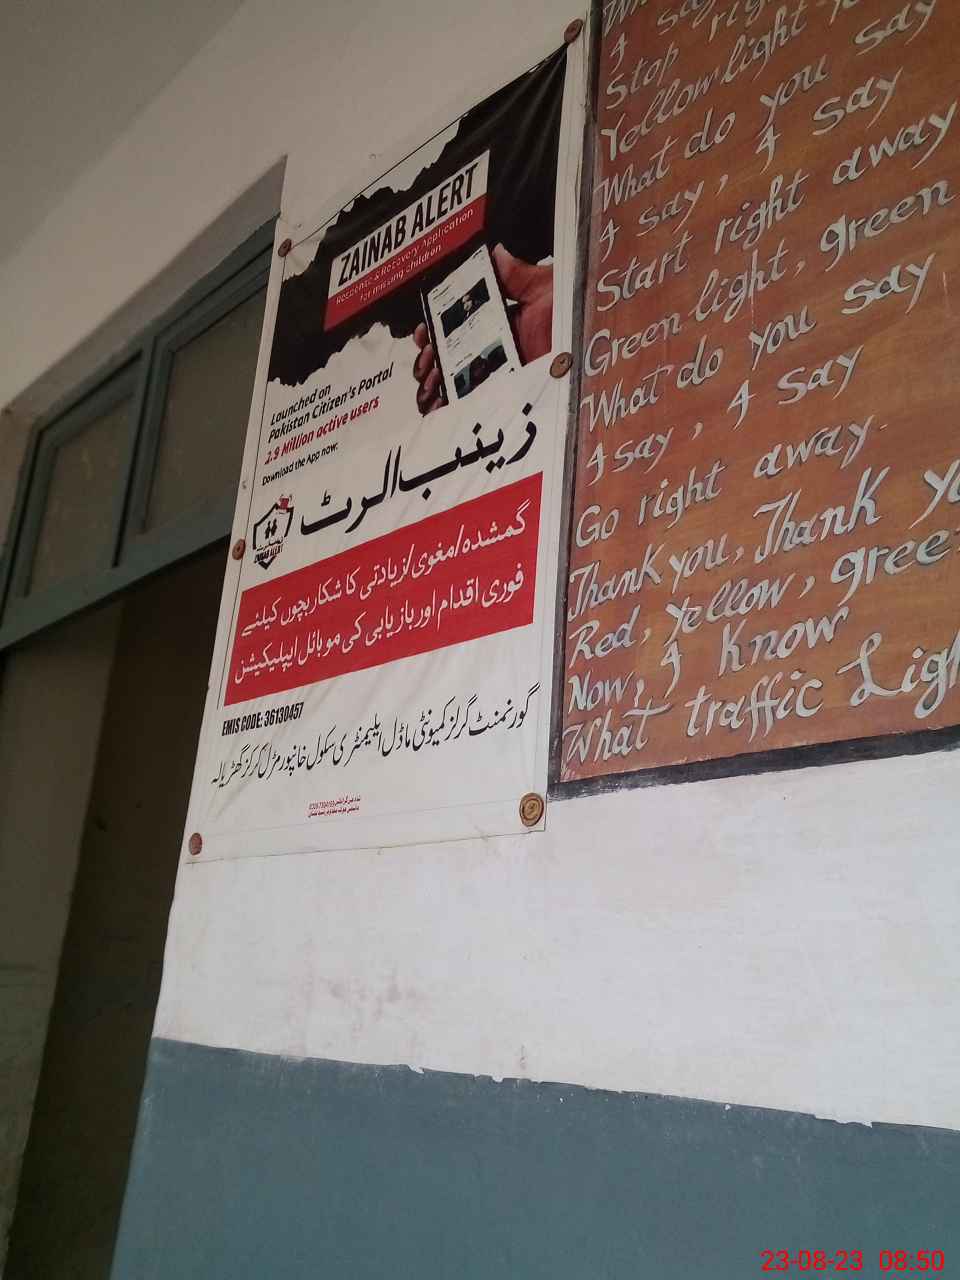 ZAINAB ALERT
Response & Recovery Application
for missing children
Launched on
Pakistan Citizen's Portal
2.9 Million active users
Download the App now:
زینب الرٹ
ZAINAB ALERT
گمشدہ/مغوی/زیادتی کا شکار بچوں کیلئے
فوری اقدام اور بازیابی کی موبائل ایپلیکیشن
EMIS CODE: 36130457
گورنمنٹ گرلز کمیونٹی ماڈل ایلیمنٹری سکول خانپور مڑل مرکز گھڑیالہ
say
Stop
Yellow light
What do you say
I say, I say
Start right away
Green light, green
What do you say
I say, I say
Go right away.
Thank you, Thank
Red, Yellow, gree
Now, I know
What traffic Ligh
23-08-23 08:50